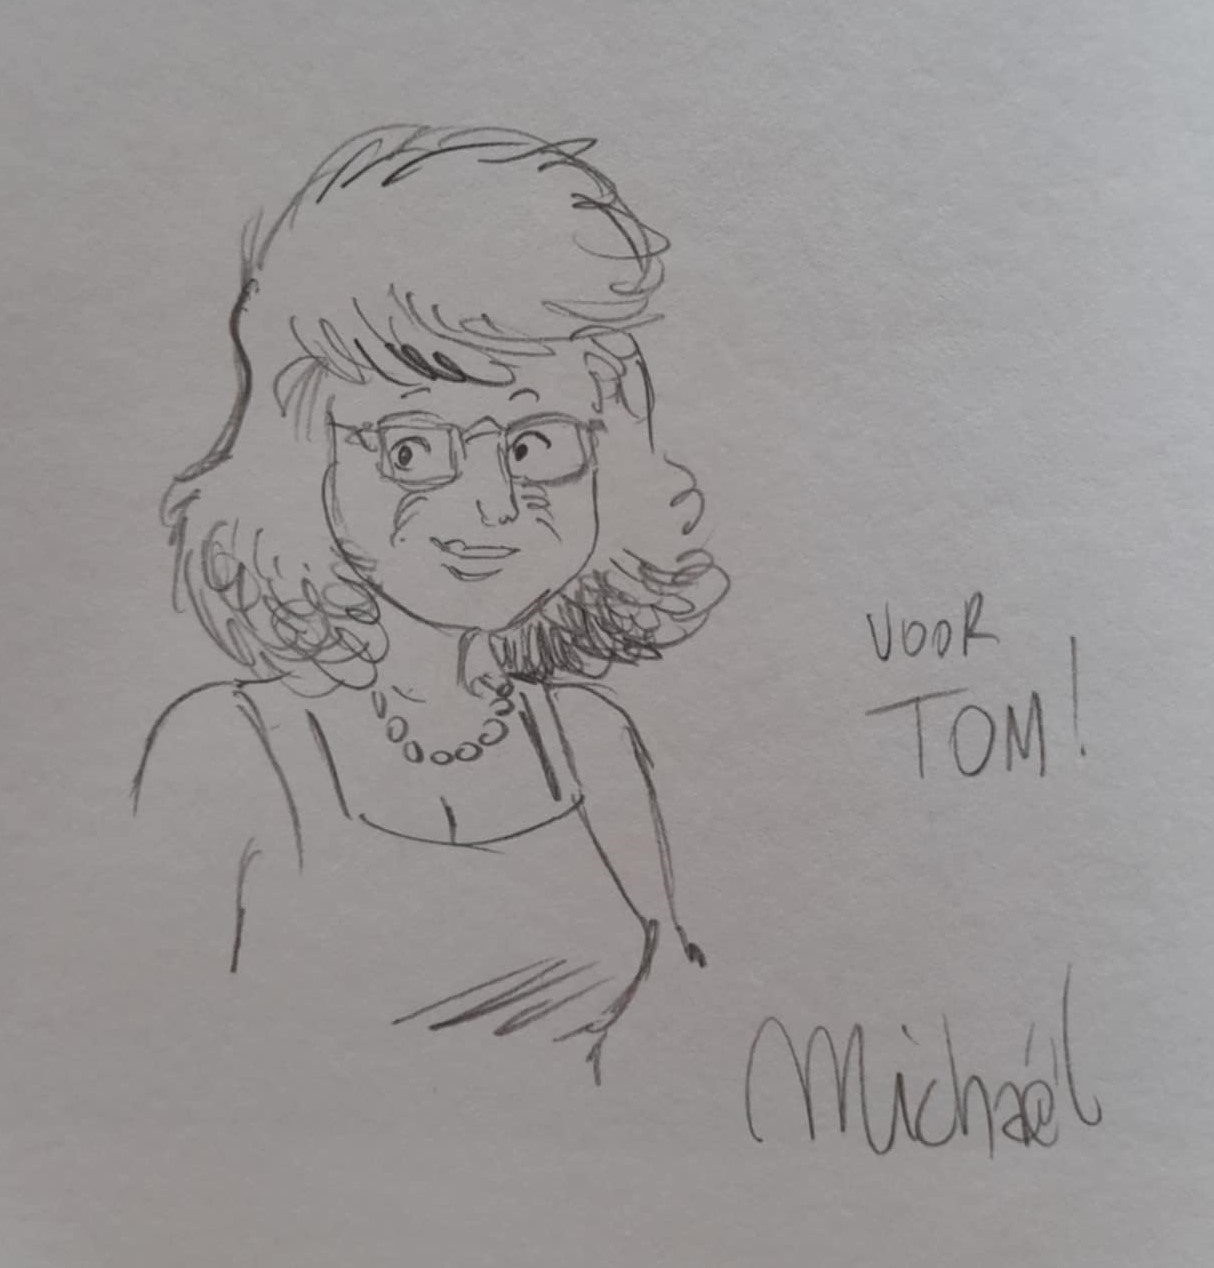 VOOR
TOM!
Michaël